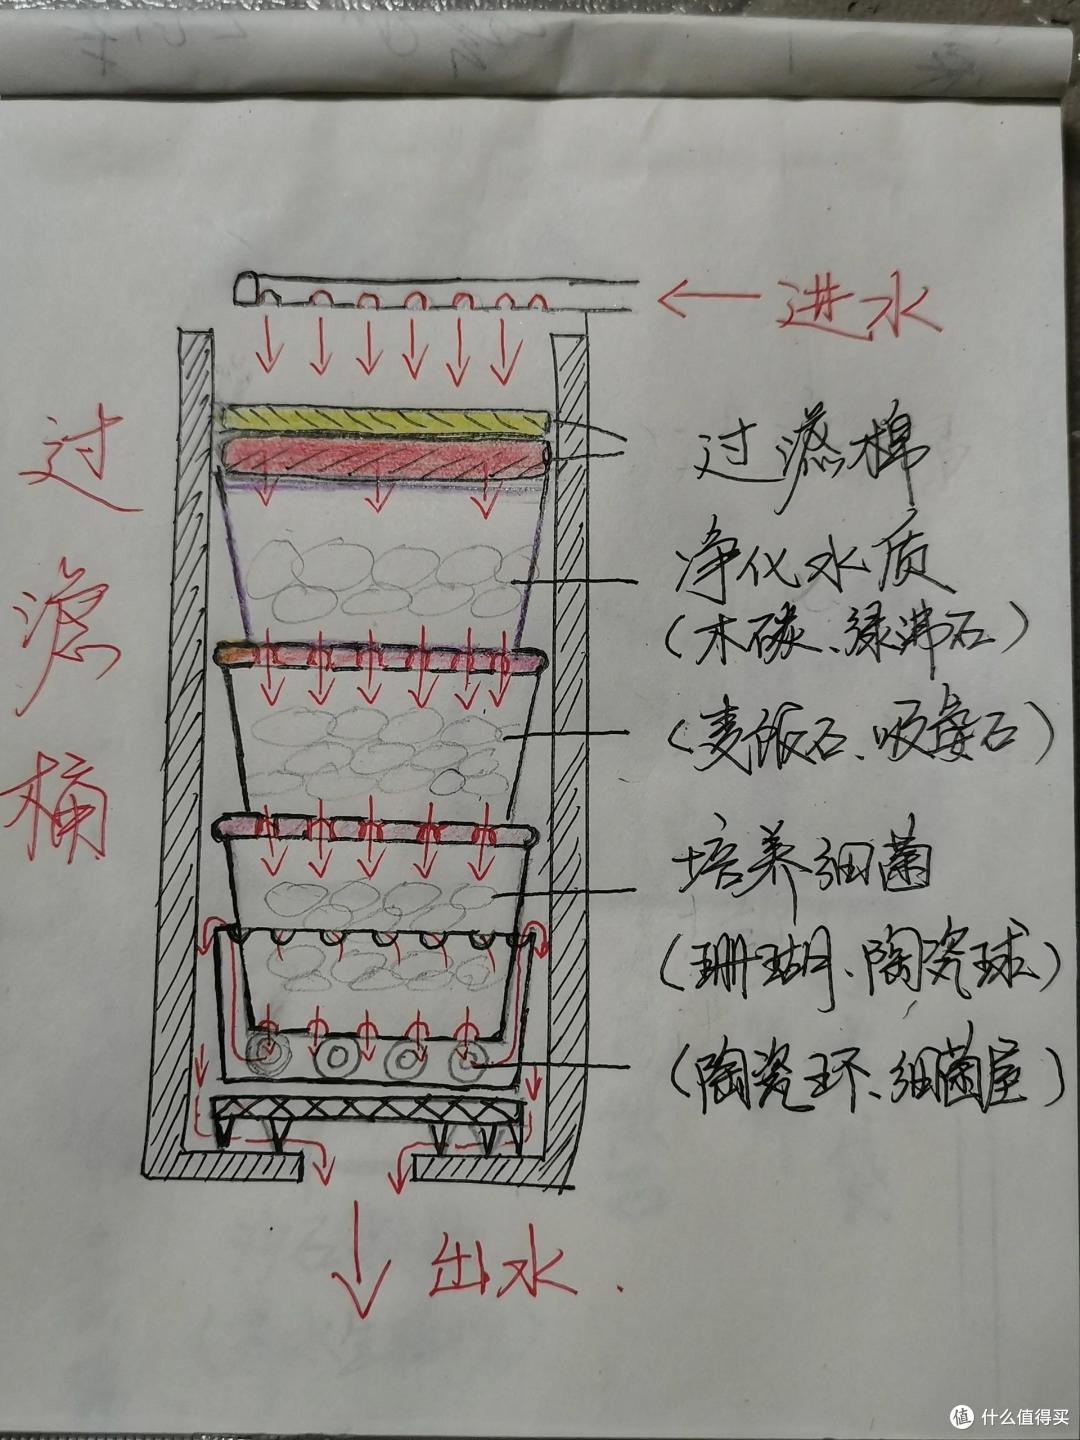 进水
过滤桶
过滤棉
净化水质
(木碳、绿沸石)
(麦饭石、吸氨石)
培养细菌
(珊瑚、陶瓷球)
(陶瓷环、细菌屋)
出水.
值 什么值得买